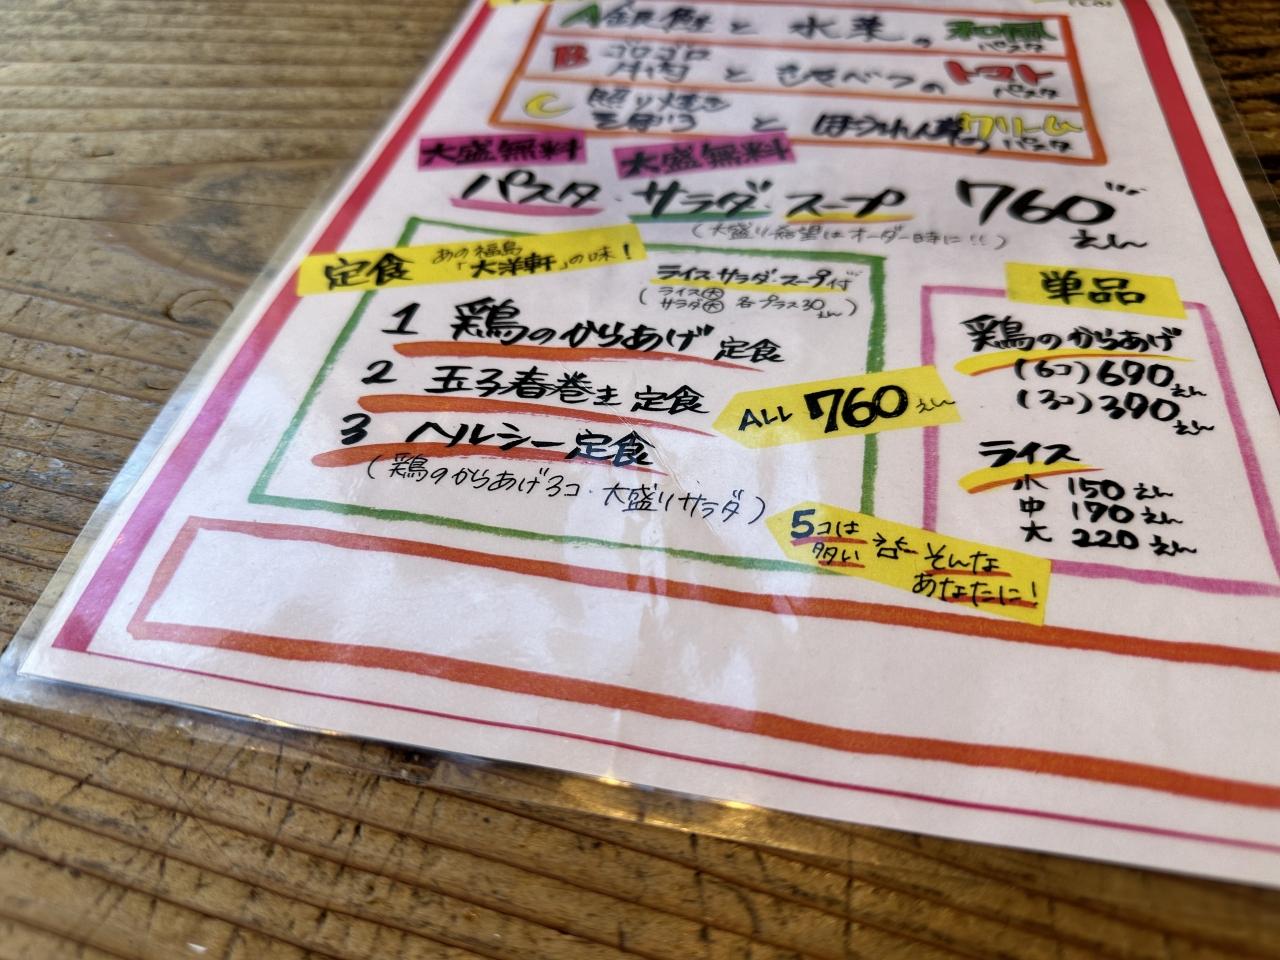 A 銀鮭と水菜の和風パスタ
B ゴロゴロ
と きゃべつのトマトパスタ
C 照り焼き
と ほうれん草のクリームパスタ
大盛無料 大盛無料
パスタ・サラダ・スープ 760えん
(大盛り希望はオーダー時に!!)
定食 あの福島「大洋軒」の味!
ライス.サラダ.スープ付
(ライス大 サラダ大 各プラス30えん)
1 鶏のからあげ定食
2 玉子春巻き定食
3 ヘルシー定食
(鶏のからあげ3コ・大盛りサラダ)
ALL 760えん
5コは多い そんなあなたに!
単品
鶏のからあげ
(6コ)690えん
(3コ)390えん
ライス
小 150えん
中 190えん
大 220えん